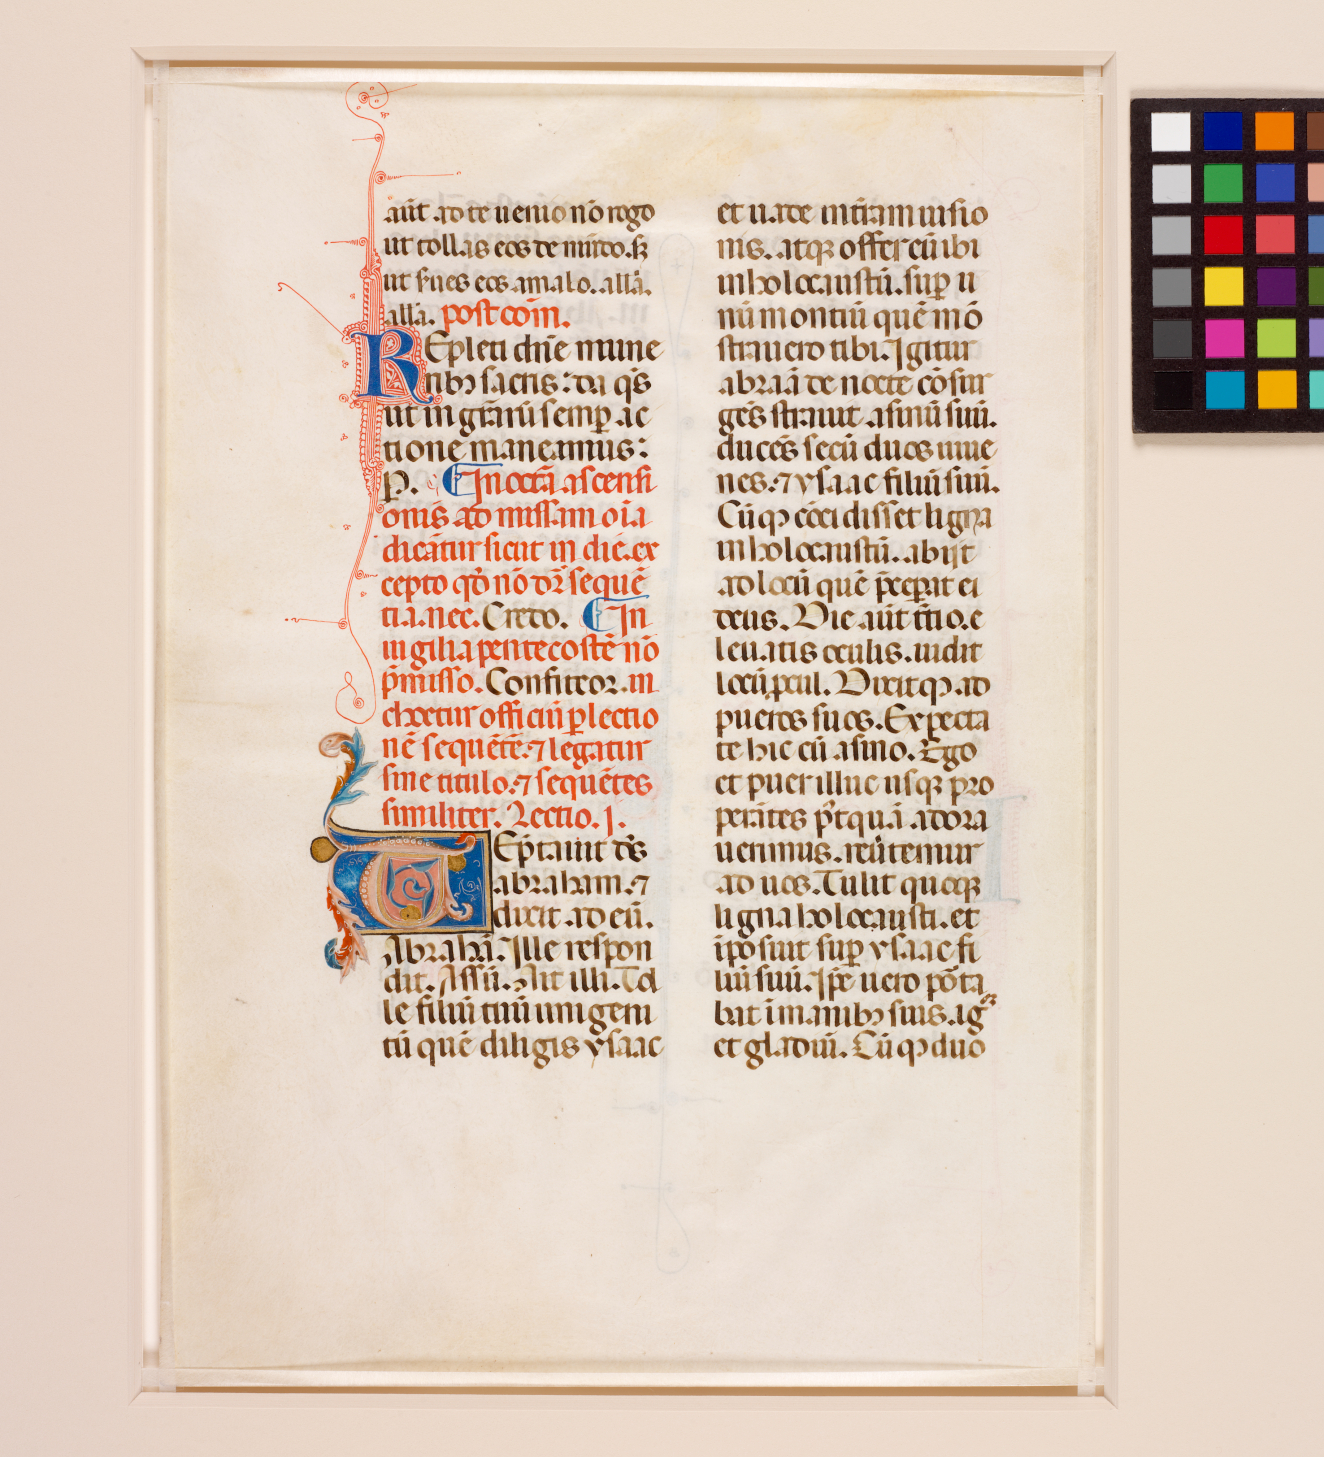 aūt ad te uenio nō rogo
ut tollas eos de mūdo. sʒ
ut s̄ues eos a malo. allā.
allā. post cōm̄.
REpleti dn̄e mune
ribꝫ sacris: da q̄s
ut in gr̄arū semꝑ ac
tione maneamus:
P̱. ₵ In octā ascensi
onis ad missam oīa
dicātur sicut in die. ex
cepto qđ nō dr̄ sequē
tia. nec. Credo. ₵ In
uigilia pentecostē nō
p̄misso. Confiteor. in
choetur officiū ꝑ lectio
nē sequētē. ⁊ legatur
sine titulo. ⁊ sequētes
similiter. Lectio. j.
TEptauit ds̄
abraham. ⁊
dixit ad eū.
Abrahā. Ille respon
dit. Assū. Ait illi. Tol
le filiū tuū unigeni
tū quē diligis ysaac
et uade in t̄ram uisio
nis. atqꝫ offer eū ibi
in holocaustū. suꝑ u
nū montiū quē mō
strauero tibi. Igitur
abraā de nocte cōsur
gēs strauit asinū suū.
ducēs secū duos iuue
nes. ⁊ ysaac filiū suū.
Cūqꝫ cōcidisset ligna
in holocaustū. abijt
ad locū quē p̄ceꝑat ei
deus. Die aūt t̄tio. e
leuatis oculis. uidit
locū ꝓcul. Dixitqꝫ ad
pueros suos. Expecta
te hic cū asino. Ego
et puer illuc usqꝫ pro
perātes p̄tquā adora
uerimus. reūtemur
ad uos. Tulit quoqꝫ
ligna holocausti. et
īposuit suꝑ ysaac fi
liū suū. Ip̄e uero pōrta
bat ī manibꝫ suis. igꝫ
et gladiū. Cūqꝫ duo